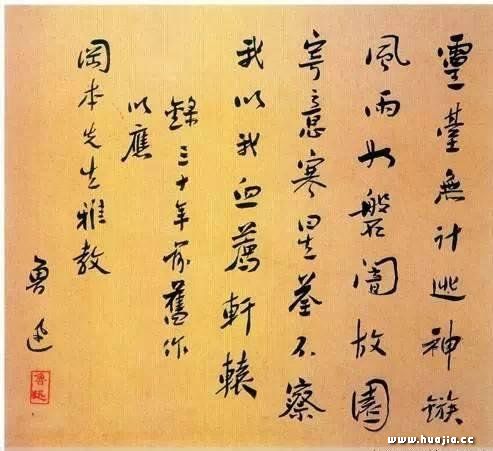 靈臺無計逃神鏃
風雨如磐闇故園
寄意寒星荃不察
我以我血薦軒轅
錄三十年前舊作
以應
岡本先生雅教
魯迅
魯迅
www.huajia.cc